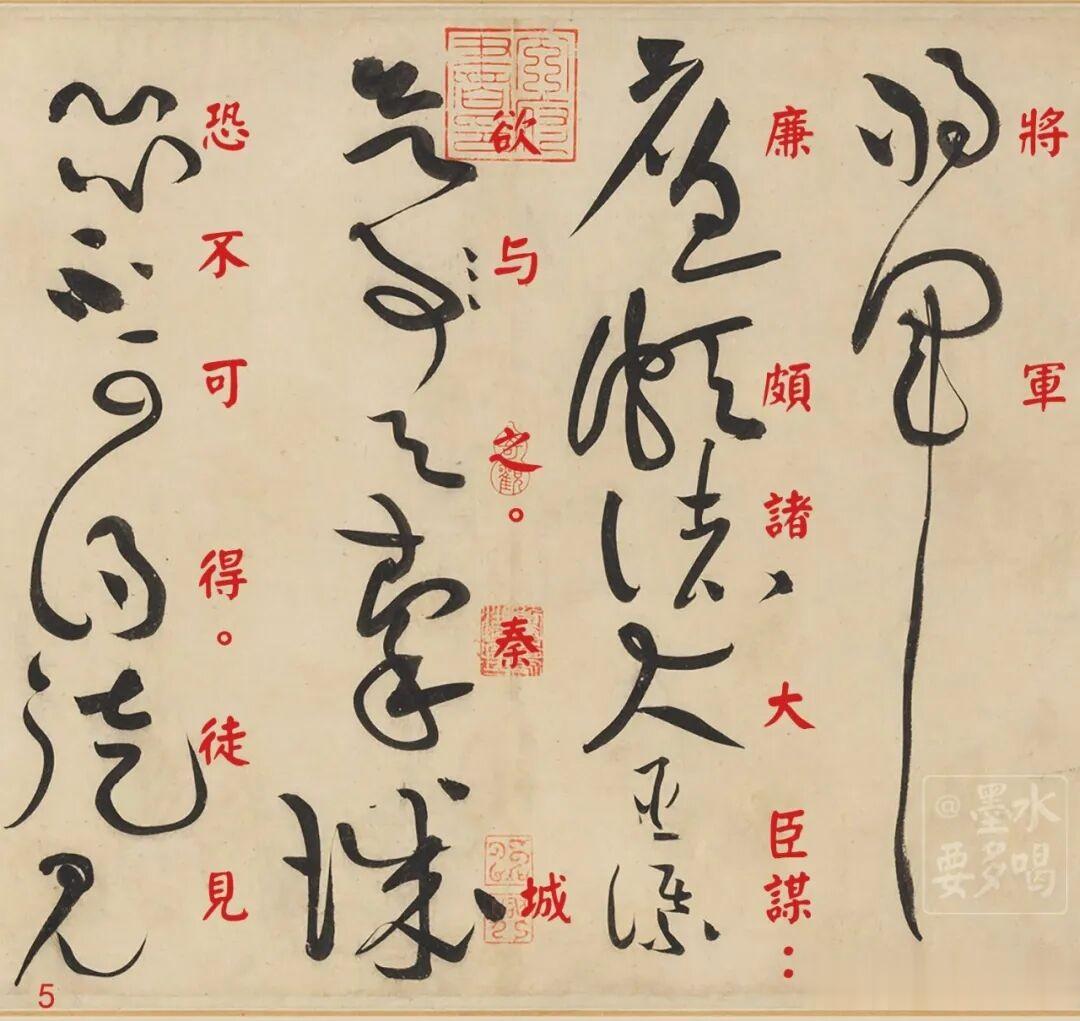 將軍
廉頗諸大臣謀：
欲与之。秦城
恐不可得。徒見
5
@墨水
要多喝